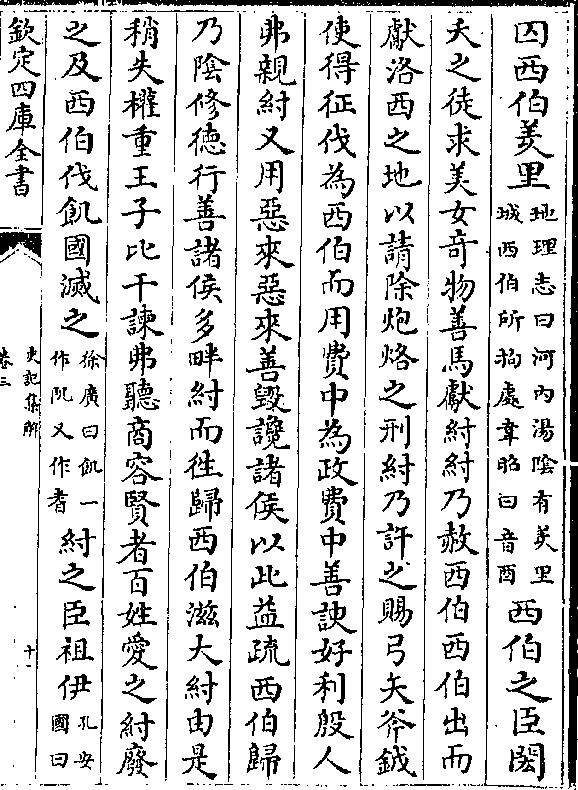 囚西伯羑里地理志曰河内湯隂有羑里城西伯所拘處韋昭曰音酉西伯之臣閎
夭之徒求美女奇物善馬獻紂紂乃赦西伯西伯出而
獻洛西之地以請除炮烙之刑紂乃許之賜弓矢斧鉞
使得征伐為西伯而用費中為政費中善諛好利殷人
弗親紂又用惡來惡來善毀讒諸侯以此益疏西伯歸
乃陰修德行善諸侯多畔紂而徃歸西伯滋大紂由是
稍失權重王子比干諫弗聽商容賢者百姓愛之紂廢
之及西伯伐飢國滅之徐廣曰飢一作𨸔又作耆紂之臣祖伊孔安國曰
欽定四庫全書
史記集解
卷三
十一